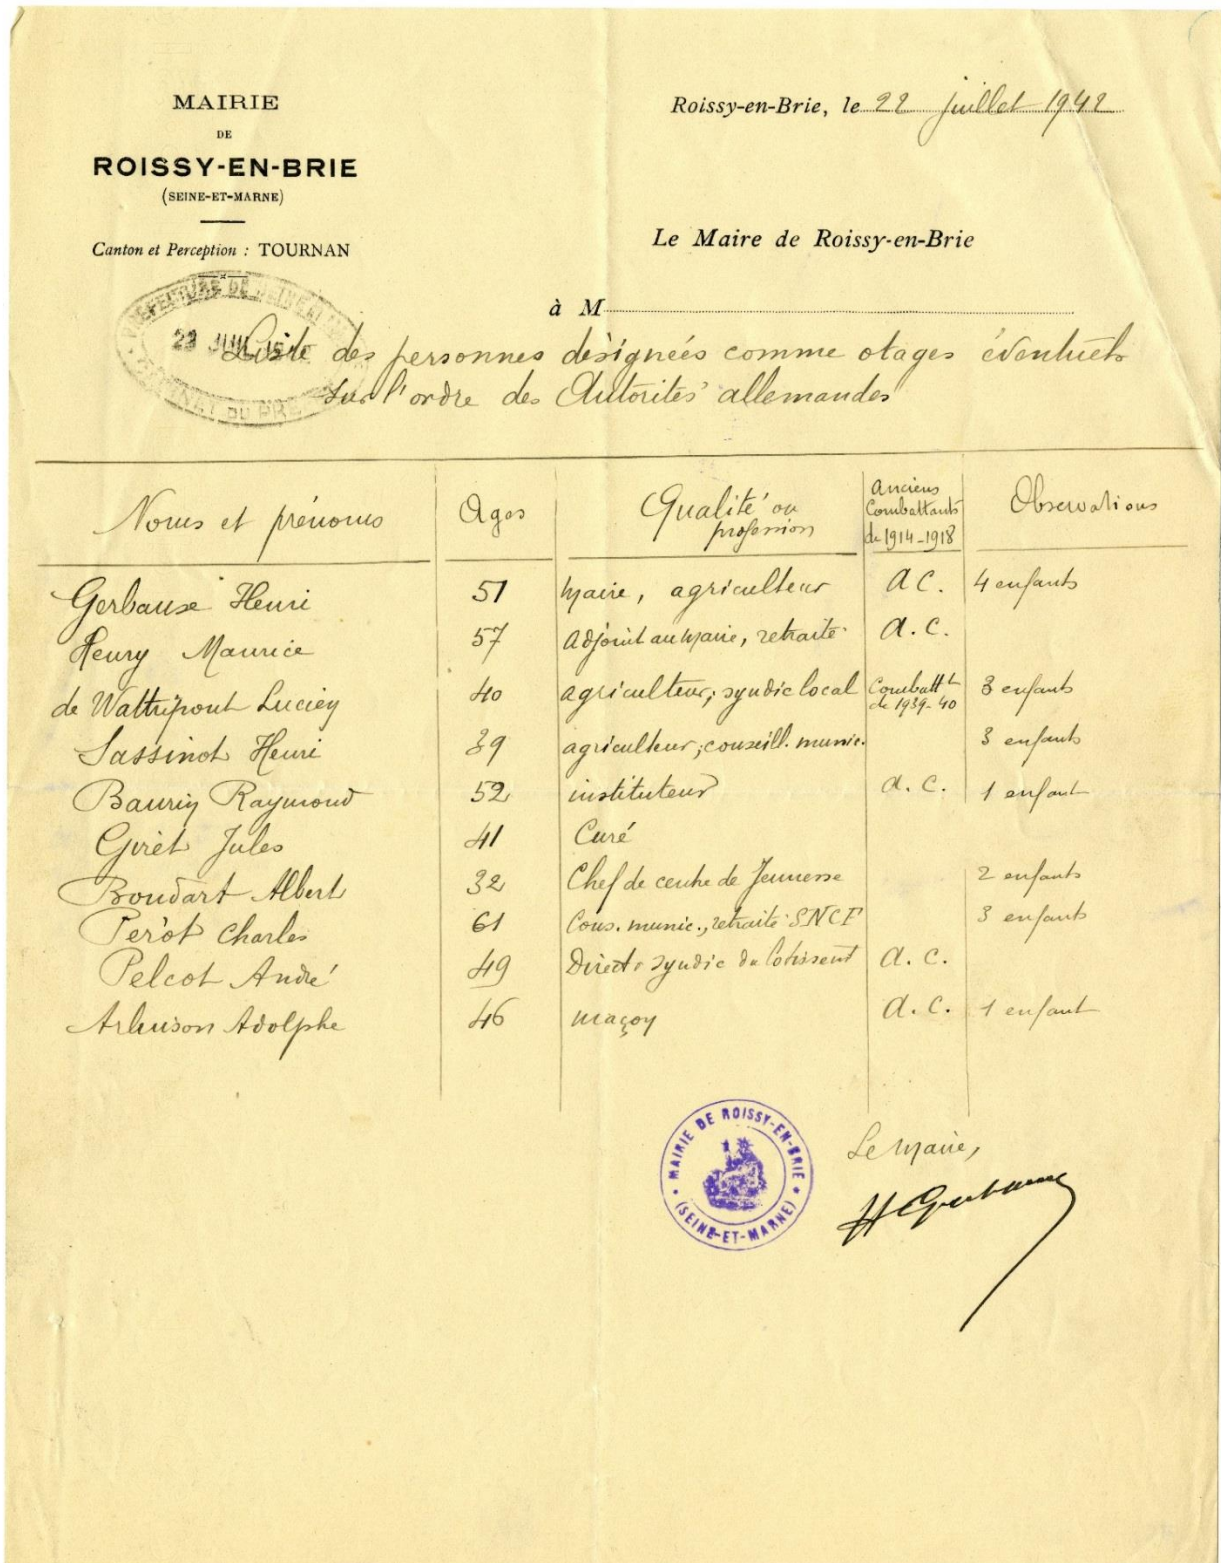 MAIRIE
DE
ROISSY-EN-BRIE
(SEINE-ET-MARNE)
Canton et Perception : TOURNAN
Roissy-en-Brie, le 22 juillet 1942
Le Maire de Roissy-en-Brie
à M
PREFECTURE DE SEINE
CABINET DU PRE
Liste des personnes désignées comme otages éventuels
sur l'ordre des Autorités allemandes
Noms et prénoms | Ages | Qualité ou profession | Anciens Combattants de 1914-1918 | Observations
Gerbause Henri 51 Maire, agriculteur A C. 4 enfants
Henry Maurice 57 Adjoint au Maire, retraité A. C.
de Wattripont Lucien 40 agriculteur; syndic local Combatt^t de 1939-40 3 enfants
Sassinot Henri 39 agriculteur; conseill. munic. 3 enfants
Baurin Raymond 52 instituteur A. C. 1 enfant
Girèt Jules 41 Curé
Boudart Albert 32 Chef de centre de Jeunesse 2 enfants
Perot Charles 61 Cons. munic., retraité SNCF 3 enfants
Pelcot André 49 Direct^r syndic du A. C.
Adolphe 46 maçon A. C. 1 enfant
MAIRIE DE ROISSY-EN-BRIE
(SEINE-ET-MARNE)
Le Maire,